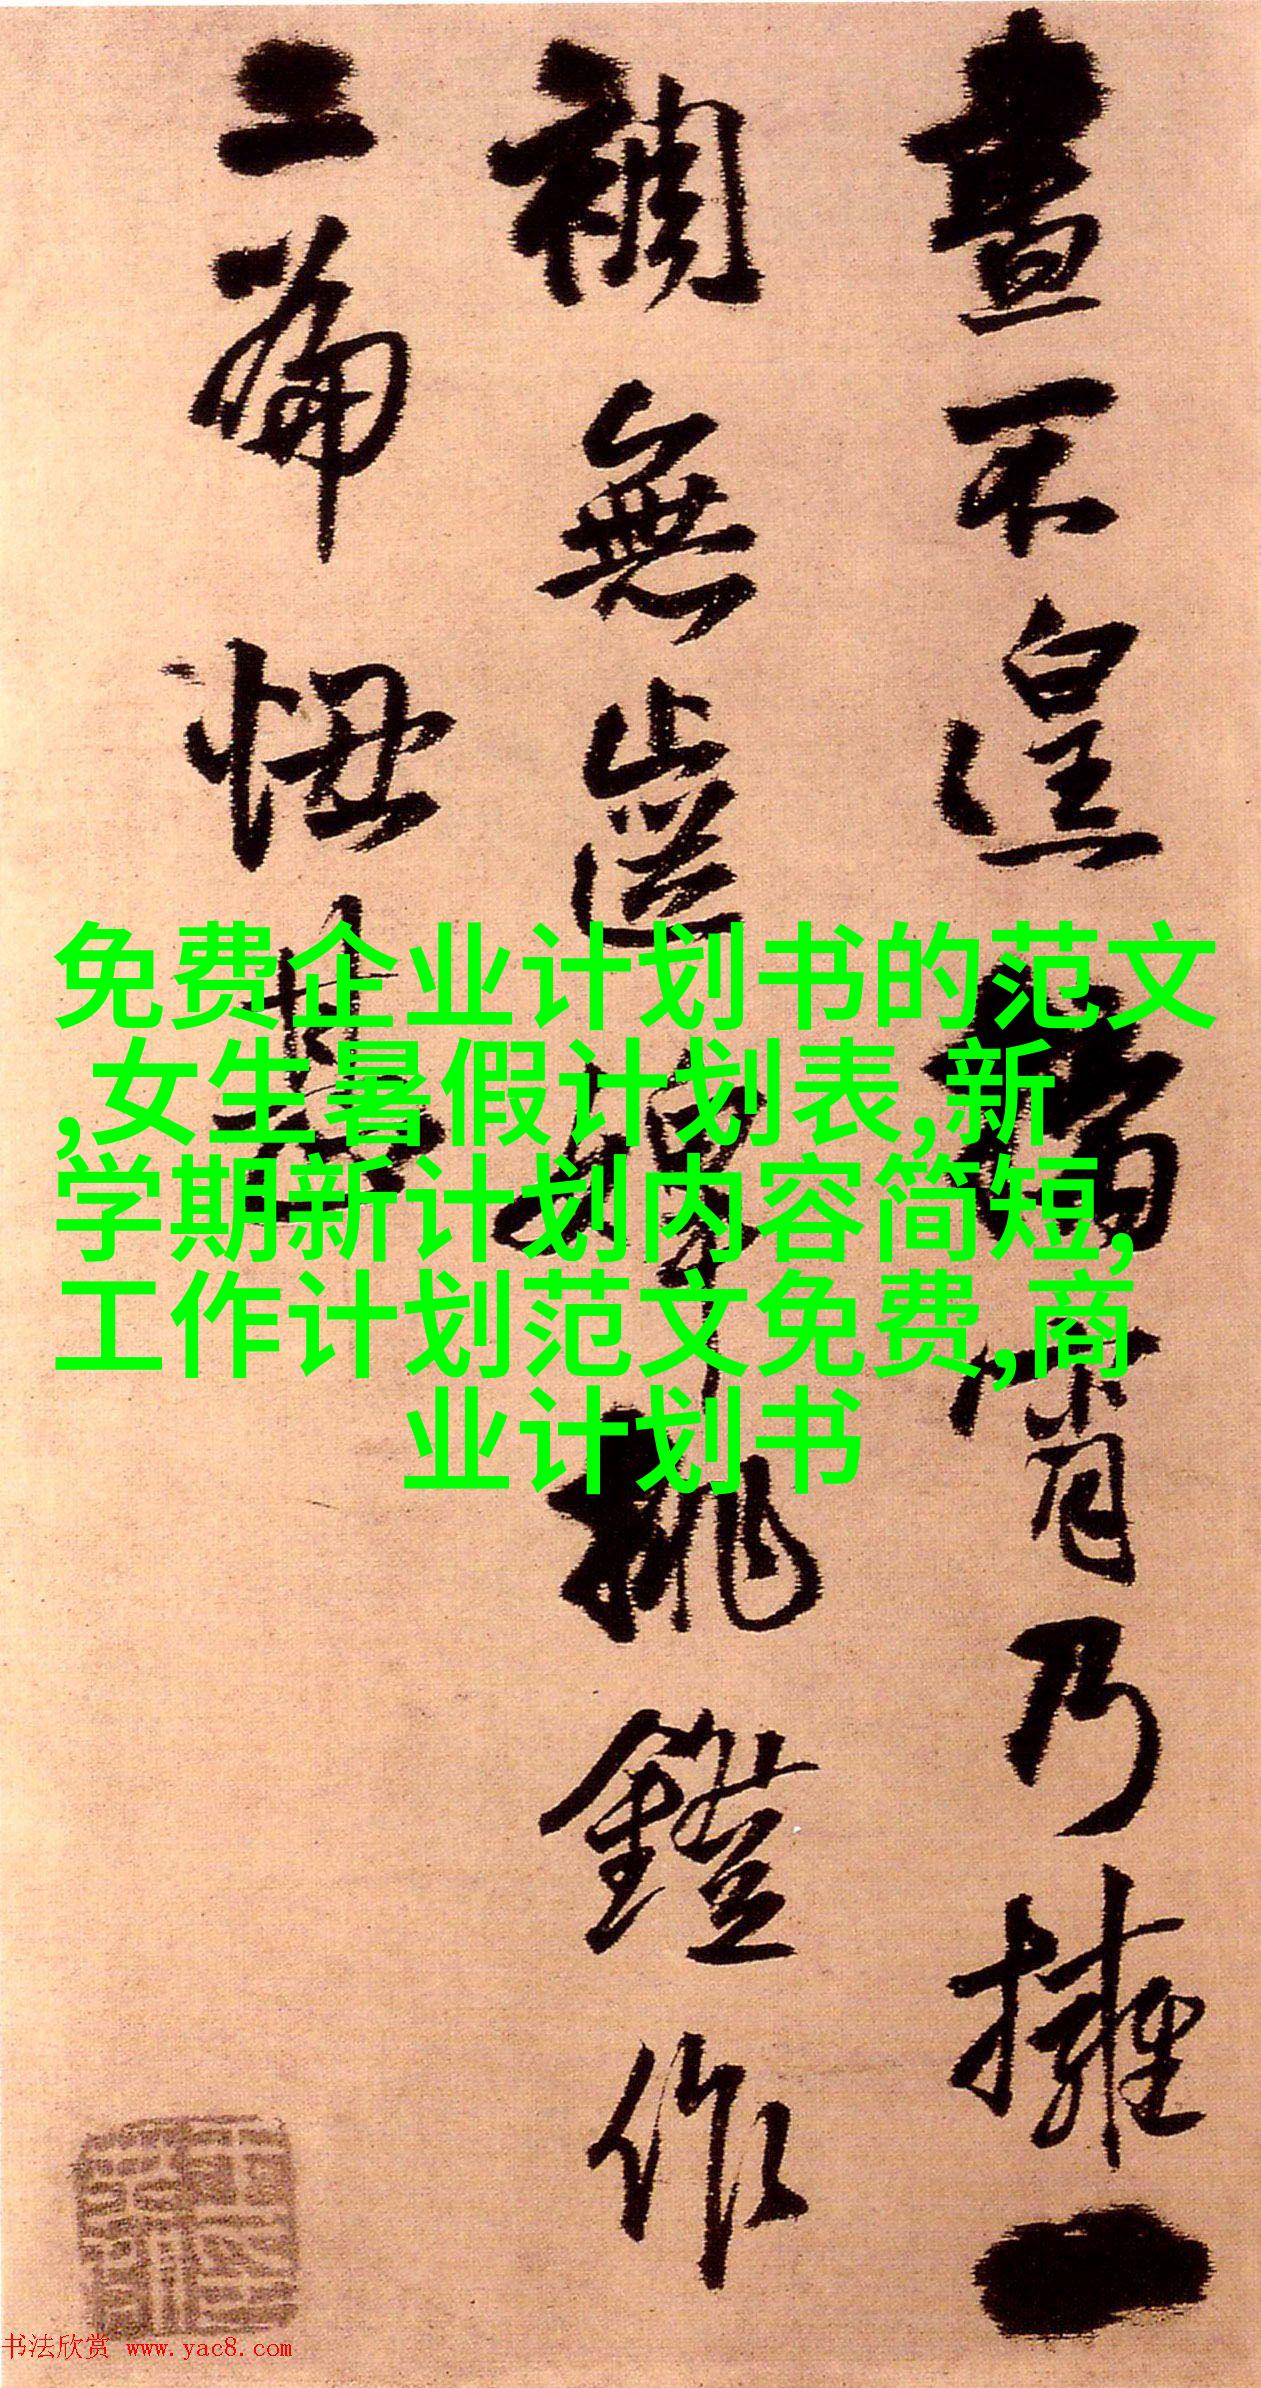 畫不遑
乃擁一
裯無
挑鐙作
二篇
免费企业计划书的范文
,女生暑假计划表,新
学期新计划内容简短,
工作计划范文免费,商
业计划书
书法欣赏 www.yac8.com